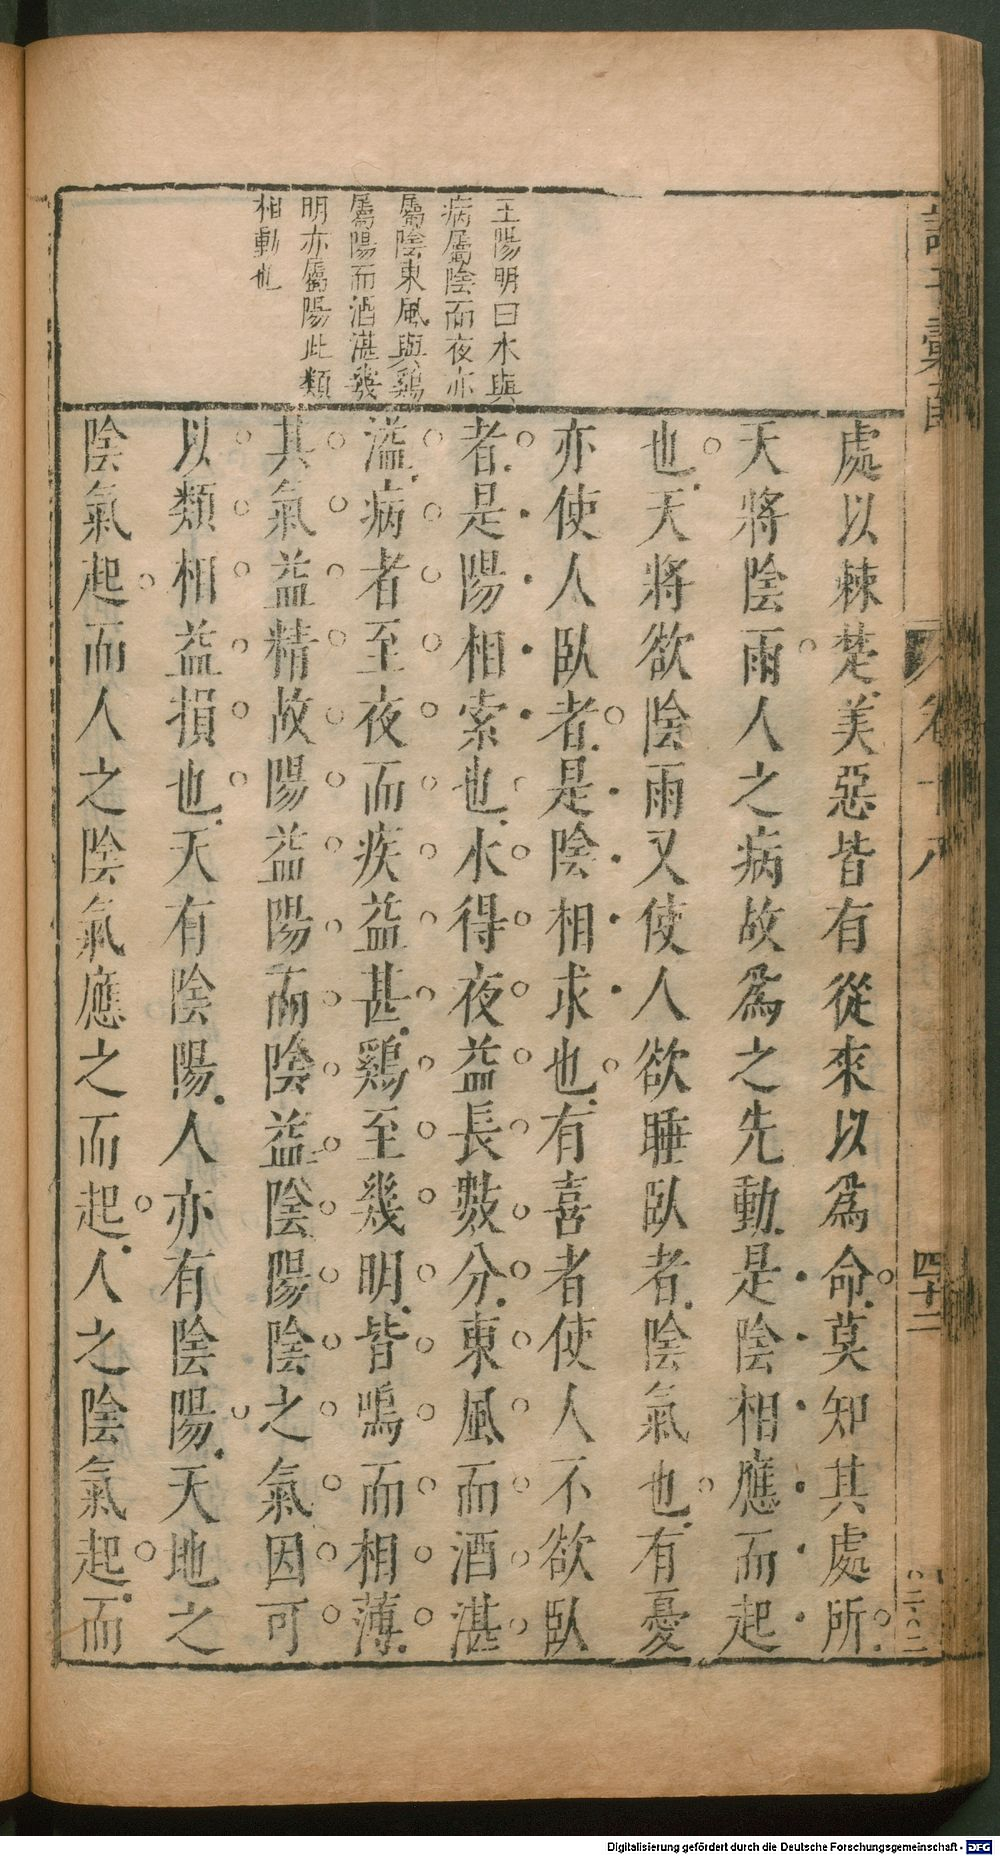 王陽明曰水與
病屬陰而夜亦
屬陰東風與鷄
屬陽而酒湛幾
明亦屬陽此類
相動也
處以棘楚美惡皆有從來以爲命莫知其處所
天將陰雨人之病故爲之先動是陰相應而起
也天將欲陰雨又使人欲睡臥者陰氣也有憂
亦使人臥者是陰相求也有喜者使人不欲臥
者是陽相索也水得夜益長數分東風而酒湛
溢病者至夜而疾益甚鷄至幾明皆鳴而相薄
其氣益精故陽益陽而陰益陰陽陰之氣因可
以類相益損也天有陰陽人亦有陰陽天地之
陰氣起而人之陰氣應之而起人之陰氣起而
卷十八
四十二
Digitalisierung gefördert durch die Deutsche Forschungsgemeinschaft - DFG